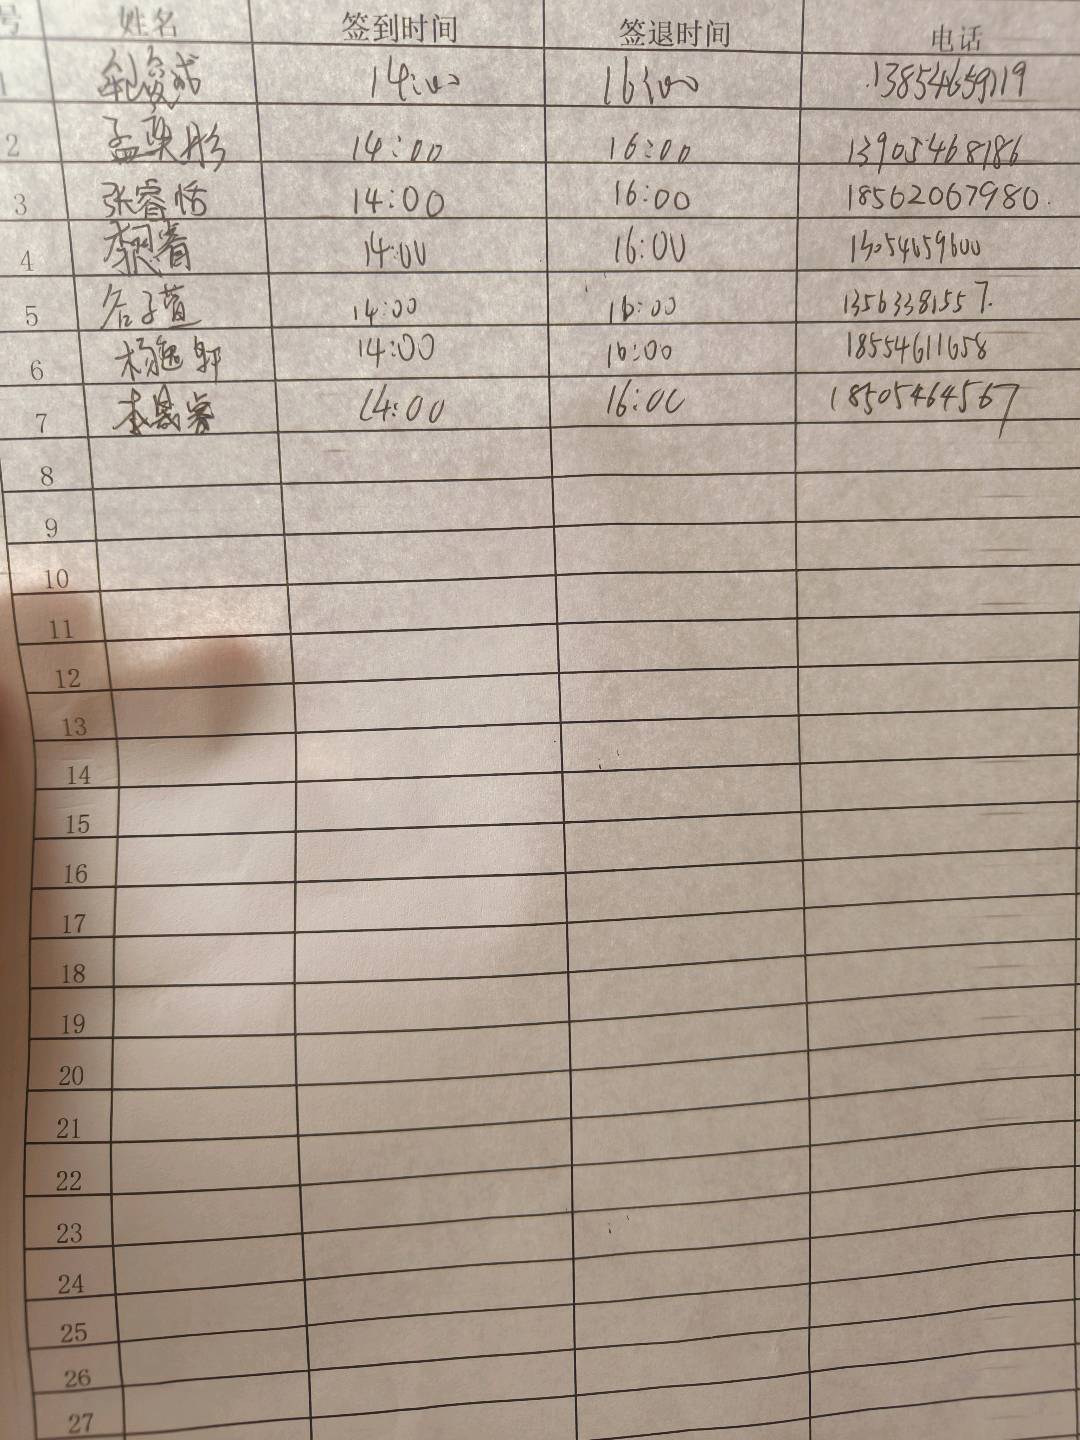 号 姓名 签到时间 签退时间 电话
1 14:00 16:00 13854659119
2 孟 彤 14:00 16:00 13905468186
3 张睿恬 14:00 16:00 18562067980
4 14:00 16:00 13054659600
5 14:00 16:00 13563381557
6 杨 轩 14:00 16:00 18554611658
7 李 睿 14:00 16:00 18505464567
8
9
10
11
12
13
14
15
16
17
18
19
20
21
22
23
24
25
26
27